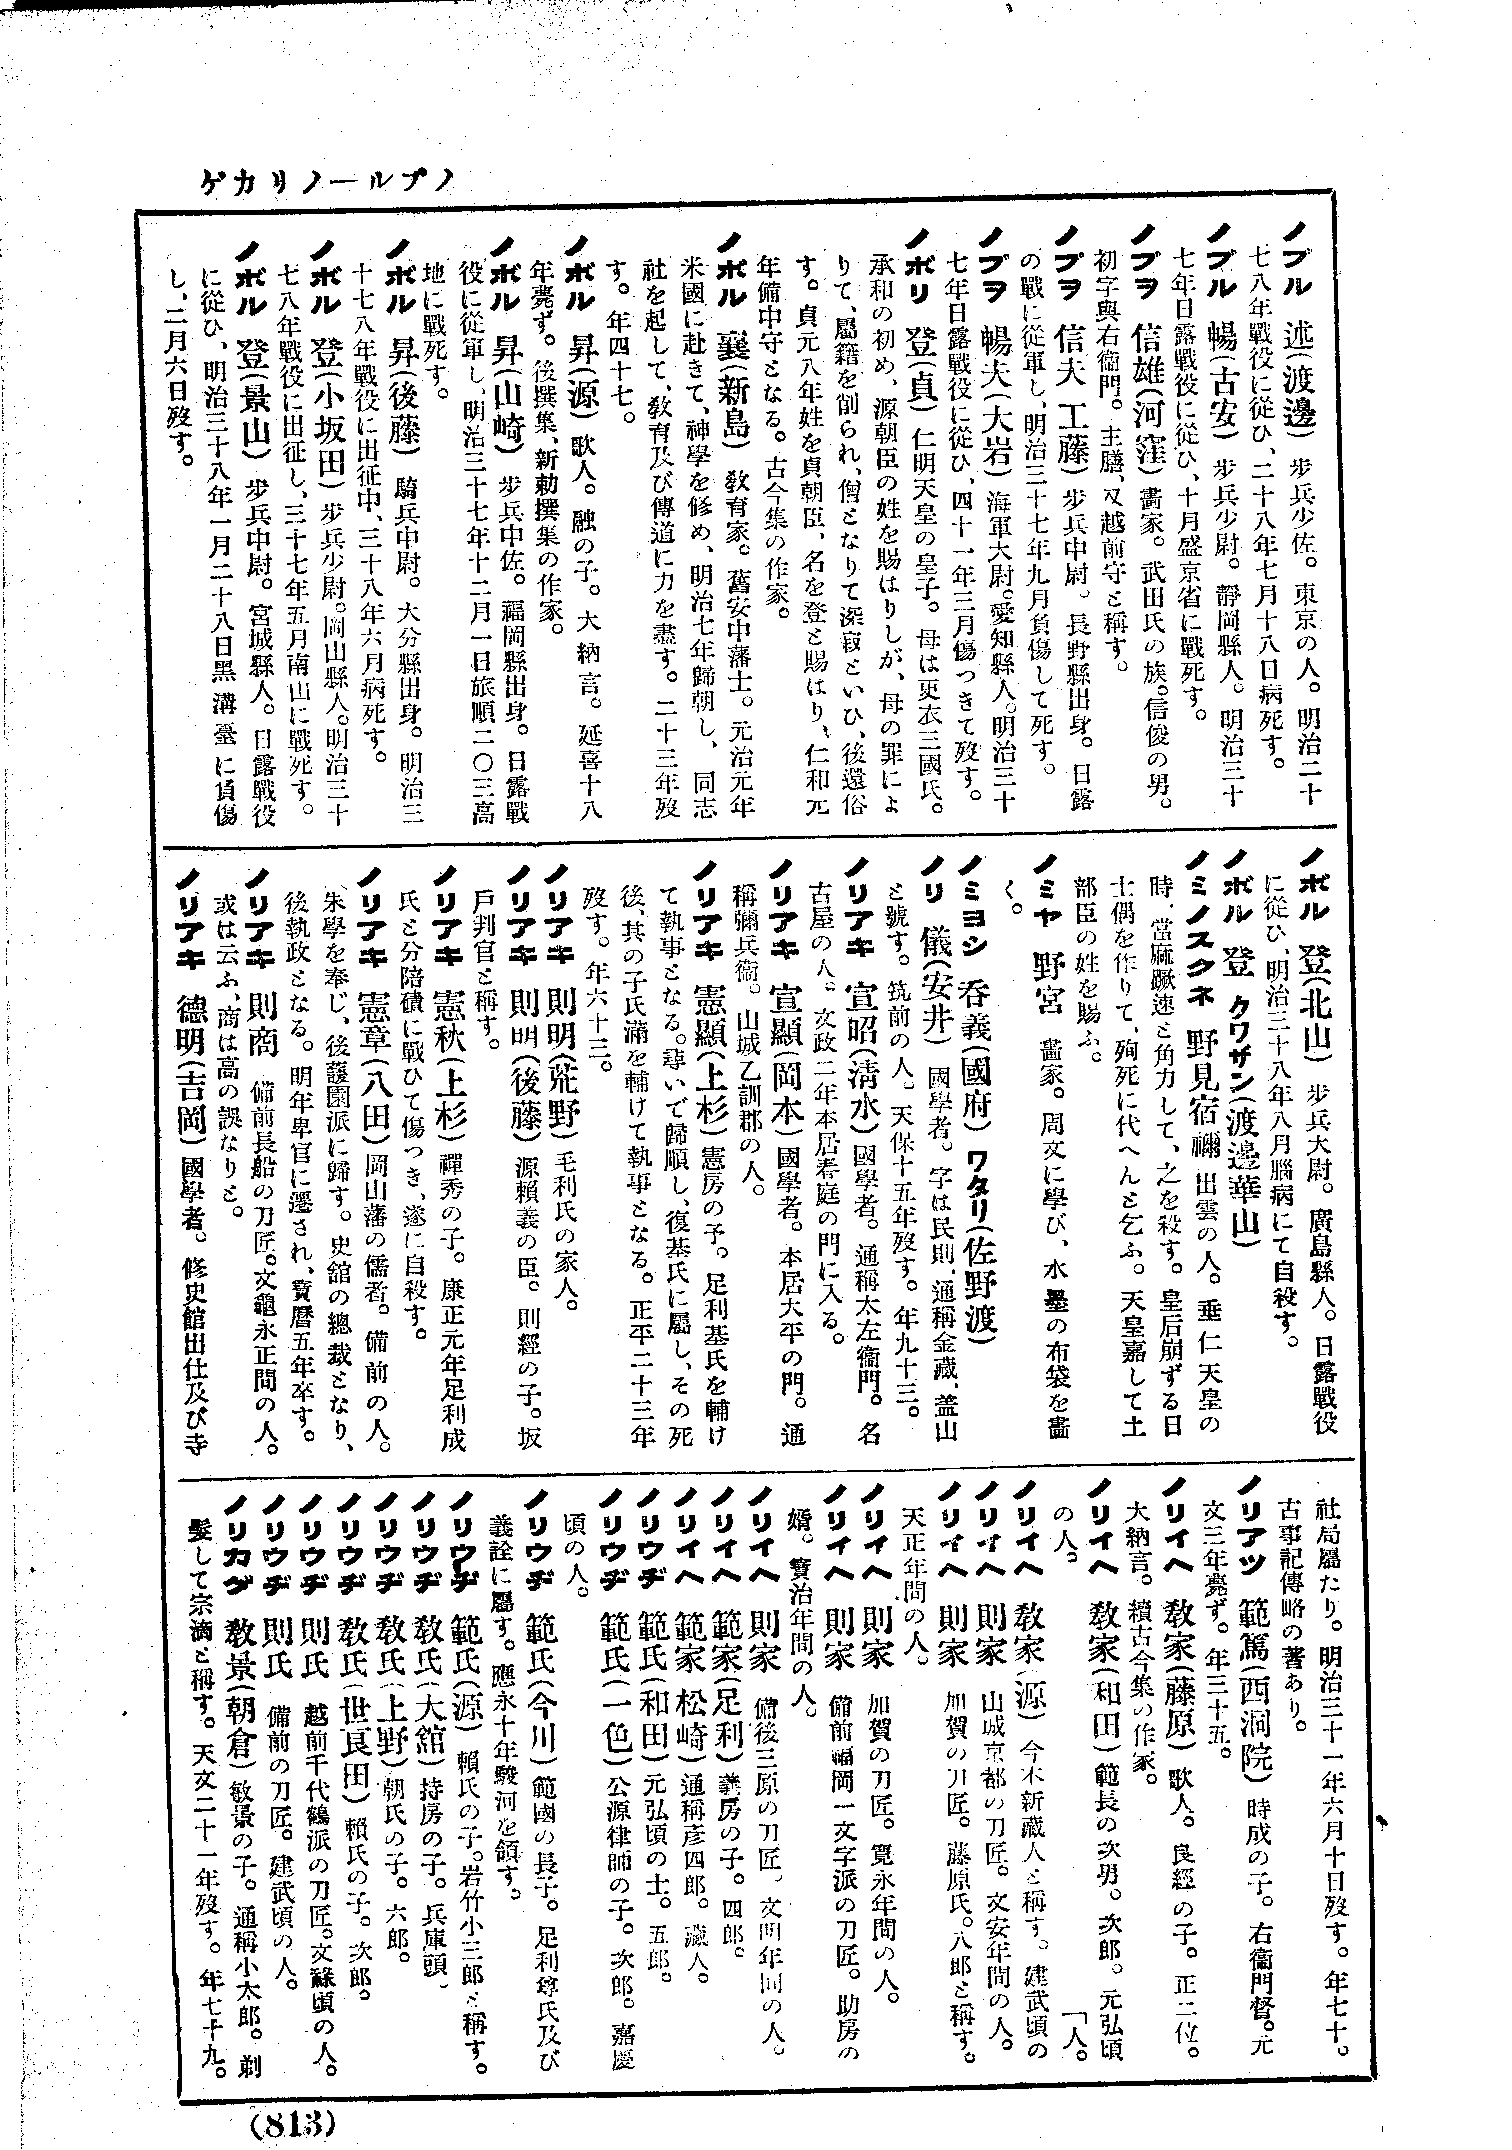 ノブル―ノリカゲ
ノブル 述(渡邊) 步兵少佐。東京の人。明治二十
七八年戰役に從ひ、二十八年七月十八日病死す。
ノブル 暢(古安) 步兵少尉。靜岡縣人。明治三十
七年日露戰役に從ひ、十月盛京省に戰死す。
ノブヲ 信雄(河窪) 畫家。武田氏の族。信俊の男。
初字與右衞門。主膳、又越前守と稱す。
ノブヲ 信夫 工藤) 步兵中尉。長野縣出身。日露
の戰に從軍し、明治三十七年九月負傷して死す。
ノブヲ 暢夫(大岩) 海軍大尉。愛知縣人。明治三十
七年日露戰役に從ひ、四十一年三月傷つきて歿す。
ノボリ 登(貞) 仁明天皇の皇子。母は更衣三國氏。
承和の初め、源朝臣の姓を賜はりしが、母の罪によ
りて、屬籍を削られ、僧となりて深寂といひ、後還俗
す。貞元八年姓を貞朝臣、名を登と賜はり、仁和元
年備中守となる。古今集の作家。
ノボル 襄(新島) 敎育家。舊安中藩士。元治元年
米國に赴きて、神學を修め、明治七年歸朝し、同志
社を起して、敎育及び傳道に力を盡す。二十三年歿
す。年四十七。
ノボル 昇(源) 歌人。融の子。大納言。延喜十八
年薨ず。後撰集、新勅撰集の作家。
ノボル 昇(山崎) 步兵中佐。福岡縣出身。日露戰
役に從軍し、明治三十七年十二月一日旅順二〇三高
地に戰死す。
ノボル 昇(後藤) 騎兵中尉。大分縣出身。明治三
十七八年戰役に出征中、三十八年六月病死す。
ノボル 登(小坂田) 步兵少尉。岡山縣人。明治三十
七八年戰役に出征し、三十七年五月南山に戰死す。
ノボル 登(景山) 步兵中尉。宮城縣人。日露戰役
に從ひ、明治三十八年一月二十八日黑溝臺に負傷
し、二月六日歿す。
ノボル 登(北山) 步兵大尉。廣島縣人。日露戰役
に從ひ、明治三十八年八月腦病にて自殺す。
ノボル 登 クワザン(渡邊華山)
ノミノスクネ 野見宿禰 出雲の人。垂仁天皇の
時、當麻蹶速と角力して、之を殺す。皇后崩ずる日
士偶を作りて、殉死に代へんと乞ふ。天皇嘉して土
部臣の姓を賜ふ。
ノミヤ 野宮 畫家。周文に學び、水墨の布袋を畵
く。
ノミヨシ 呑義(國府) ワタリ(佐野渡)
ノリ 儀(安井) 國學者。字は民則、通稱金藏、蓋山
と號す。筑前の人。天保十五年歿す。年九十三。
ノリアキ 宣昭(淸水) 國學者。通稱太左衞門。名
古屋の人。文政二年本居春庭の門に入る。
ノリアキ 宣顯(岡本) 國學者。本居大平の門。通
稱彌兵衞。山城乙訓郡の人。
ノリアキ 憲顯(上杉) 憲房の子。足利基氏を輔け
て執事となる。尋いで歸順し、復基氏に屬し、その死
後、其の子氏滿を輔けて執事となる。正平二十三年
歿す。年六十三。
ノリアキ 則明(荒野) 毛利氏の家人。
ノリアキ 則明(後藤) 源賴義の臣。則經の子。坂
戶判官と稱す。
ノリアキ 憲秋(上杉) 禪秀の子。康正元年足利成
氏と分陪磧に戰ひて傷つき、遂に自殺す。
ノリアキ 憲章(八田) 岡山藩の儒者。備前の人。
朱學を奉じ、後蘐園派に歸す。史館の總裁となり、
後執政となる。明年卑官に遷され、寶曆五年卒す。
ノリアキ 則商 備前長船の刀匠。文龜永正間の人。
或は云ふ、商は高の誤なりと。
ノリアキ 德明(吉岡) 國學者。修史館出仕及び寺
社局屬たり。明治三十一年六月十日歿す。年七十。
古事記傳略の著あり。
ノリアツ 範篤(西洞院) 時成の子。右衞門督。元
文三年薨ず。年三十五。
ノリイヘ 敎家(藤原) 歌人。良經の子。正二位。
大納言。續古今集の作家。
ノリイヘ 敎家(和田) 範長の次男。次郎。元弘頃
の人。 「人。
ノリイヘ 敎家(源) 今木新藏人と稱す。建武頃の
ノリイヘ 則家 山城京都の刀匠。文安年間の人。
ノリイヘ 則家 加賀の刀匠。藤原氏。八郎と稱す。
天正年間の人。
ノリイヘ 則家 加賀の刀匠。寬永年間の人。
ノリイヘ 則家 備前福岡一文字派の刀匠。助房の
婿。寶治年間の人。
ノリイヘ 則家 備後三原の刀匠。文明年間の人。
ノリイヘ 範家(足利) 義房の子。四郎。
ノリイヘ 範家 松崎) 通稱彥四郎。藏人。
ノリウヂ 範氏(和田) 元弘頃の士。五郎。
ノリウヂ 範氏(一色) 公源律師の子。次郎。嘉慶
頃の人。
ノリウヂ 範氏(今川) 範國の長子。足利尊氏及び
義詮に屬す。應永十年駿河を領す。
ノリウヂ 範氏(源) 賴氏の子。岩竹小三郎と稱す。
ノリウヂ 敎氏(大舘) 持房の子。兵庫頭。
ノリウヂ 敎氏(上野) 朝氏の子。六郎。
ノリウヂ 敎氏(世良田) 賴氏の子。次郎。
ノリウヂ 則氏 越前千代鶴派の刀匠。文祿頃の人。
ノリウヂ 則氏 備前の刀匠。建武頃の人。
ノリカゲ 敎景(朝倉) 敏景の子。通稱小太郎。剃
髮して宗滴と稱す。天文二十一年歿す。年七十九。
(813)